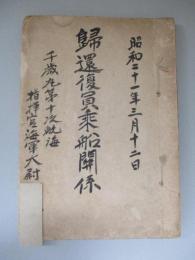 昭和二十一年三月十二日
歸還復員乗船関係
千歳丸第十次航海
指揮官海軍大尉